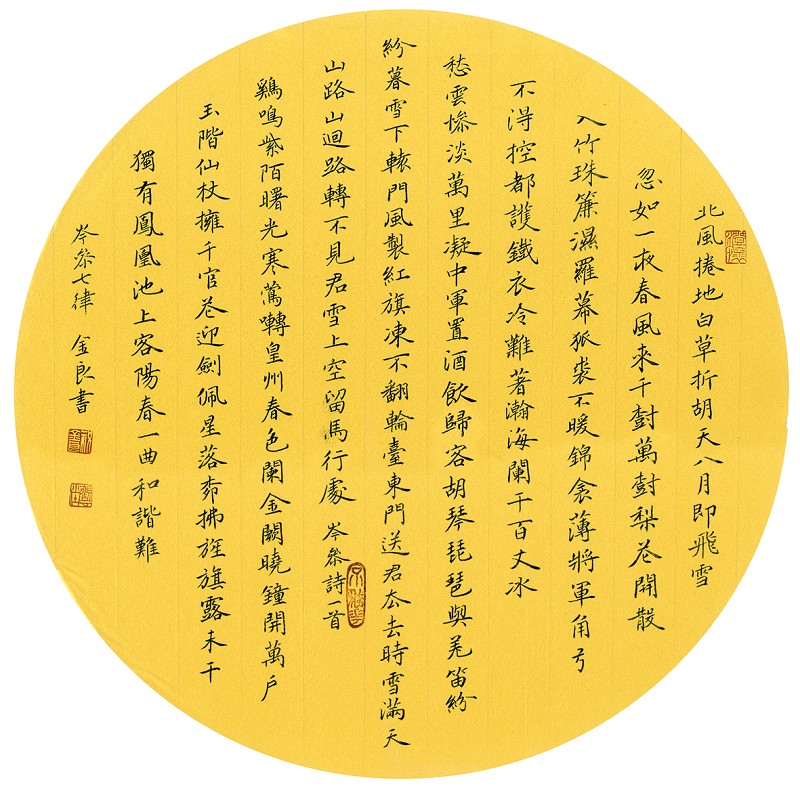 北風捲地白草折胡天八月即飛雪
忽如一夜春風來千樹萬樹梨花開散
入竹珠簾濕羅幕狐裘不暖錦衾薄將軍角弓
不得控都護鐵衣冷難著瀚海闌干百丈冰
愁雲慘淡萬里凝中軍置酒飲歸客胡琴琵琶與羌笛紛
紛暮雪下轅門風製紅旗凍不翻輪臺東門送君厺去時雪滿天
山路山迴路轉不見君雪上空留馬行處 岑參詩一首
鷄鳴紫陌曙光寒鶯囀皇州春色闌金闕曉鐘開萬戶
玉階仙杖擁千官花迎劍佩星落拂旌旗露未干
獨有鳳凰池上客陽春一曲和諧難
岑參七律 金良書